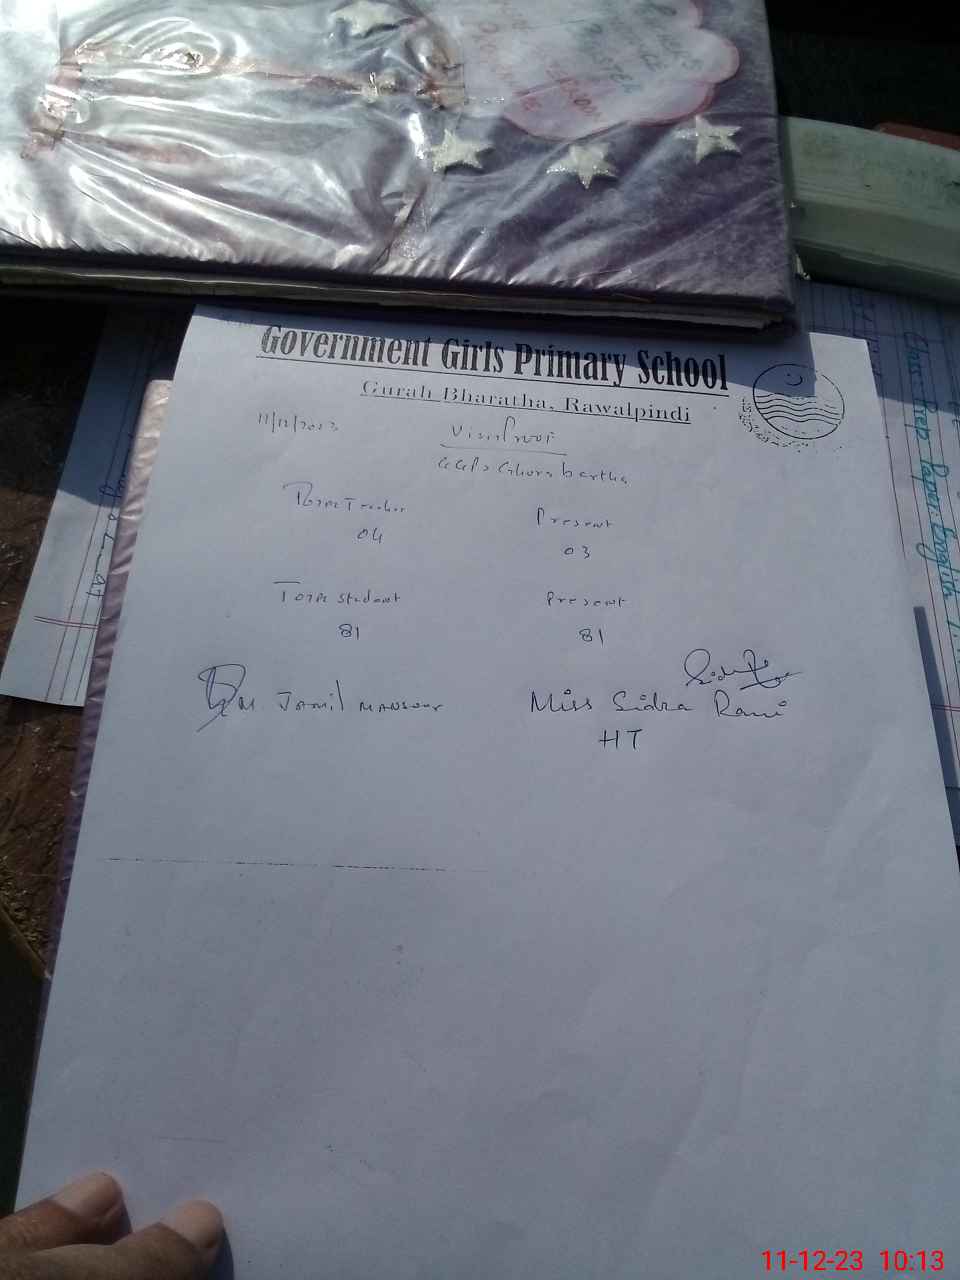 Government Girls Primary School
Gurah Bharatha, Rawalpindi
11/12/2023
Visit Proof
GGPS Ghora bartha
Total Teacher Present
04 03
Total Student Present
81 81
M Jamil Mansour Miss Sidra Rani
HT
Class: Prep Paper: English
11-12-23 10:13